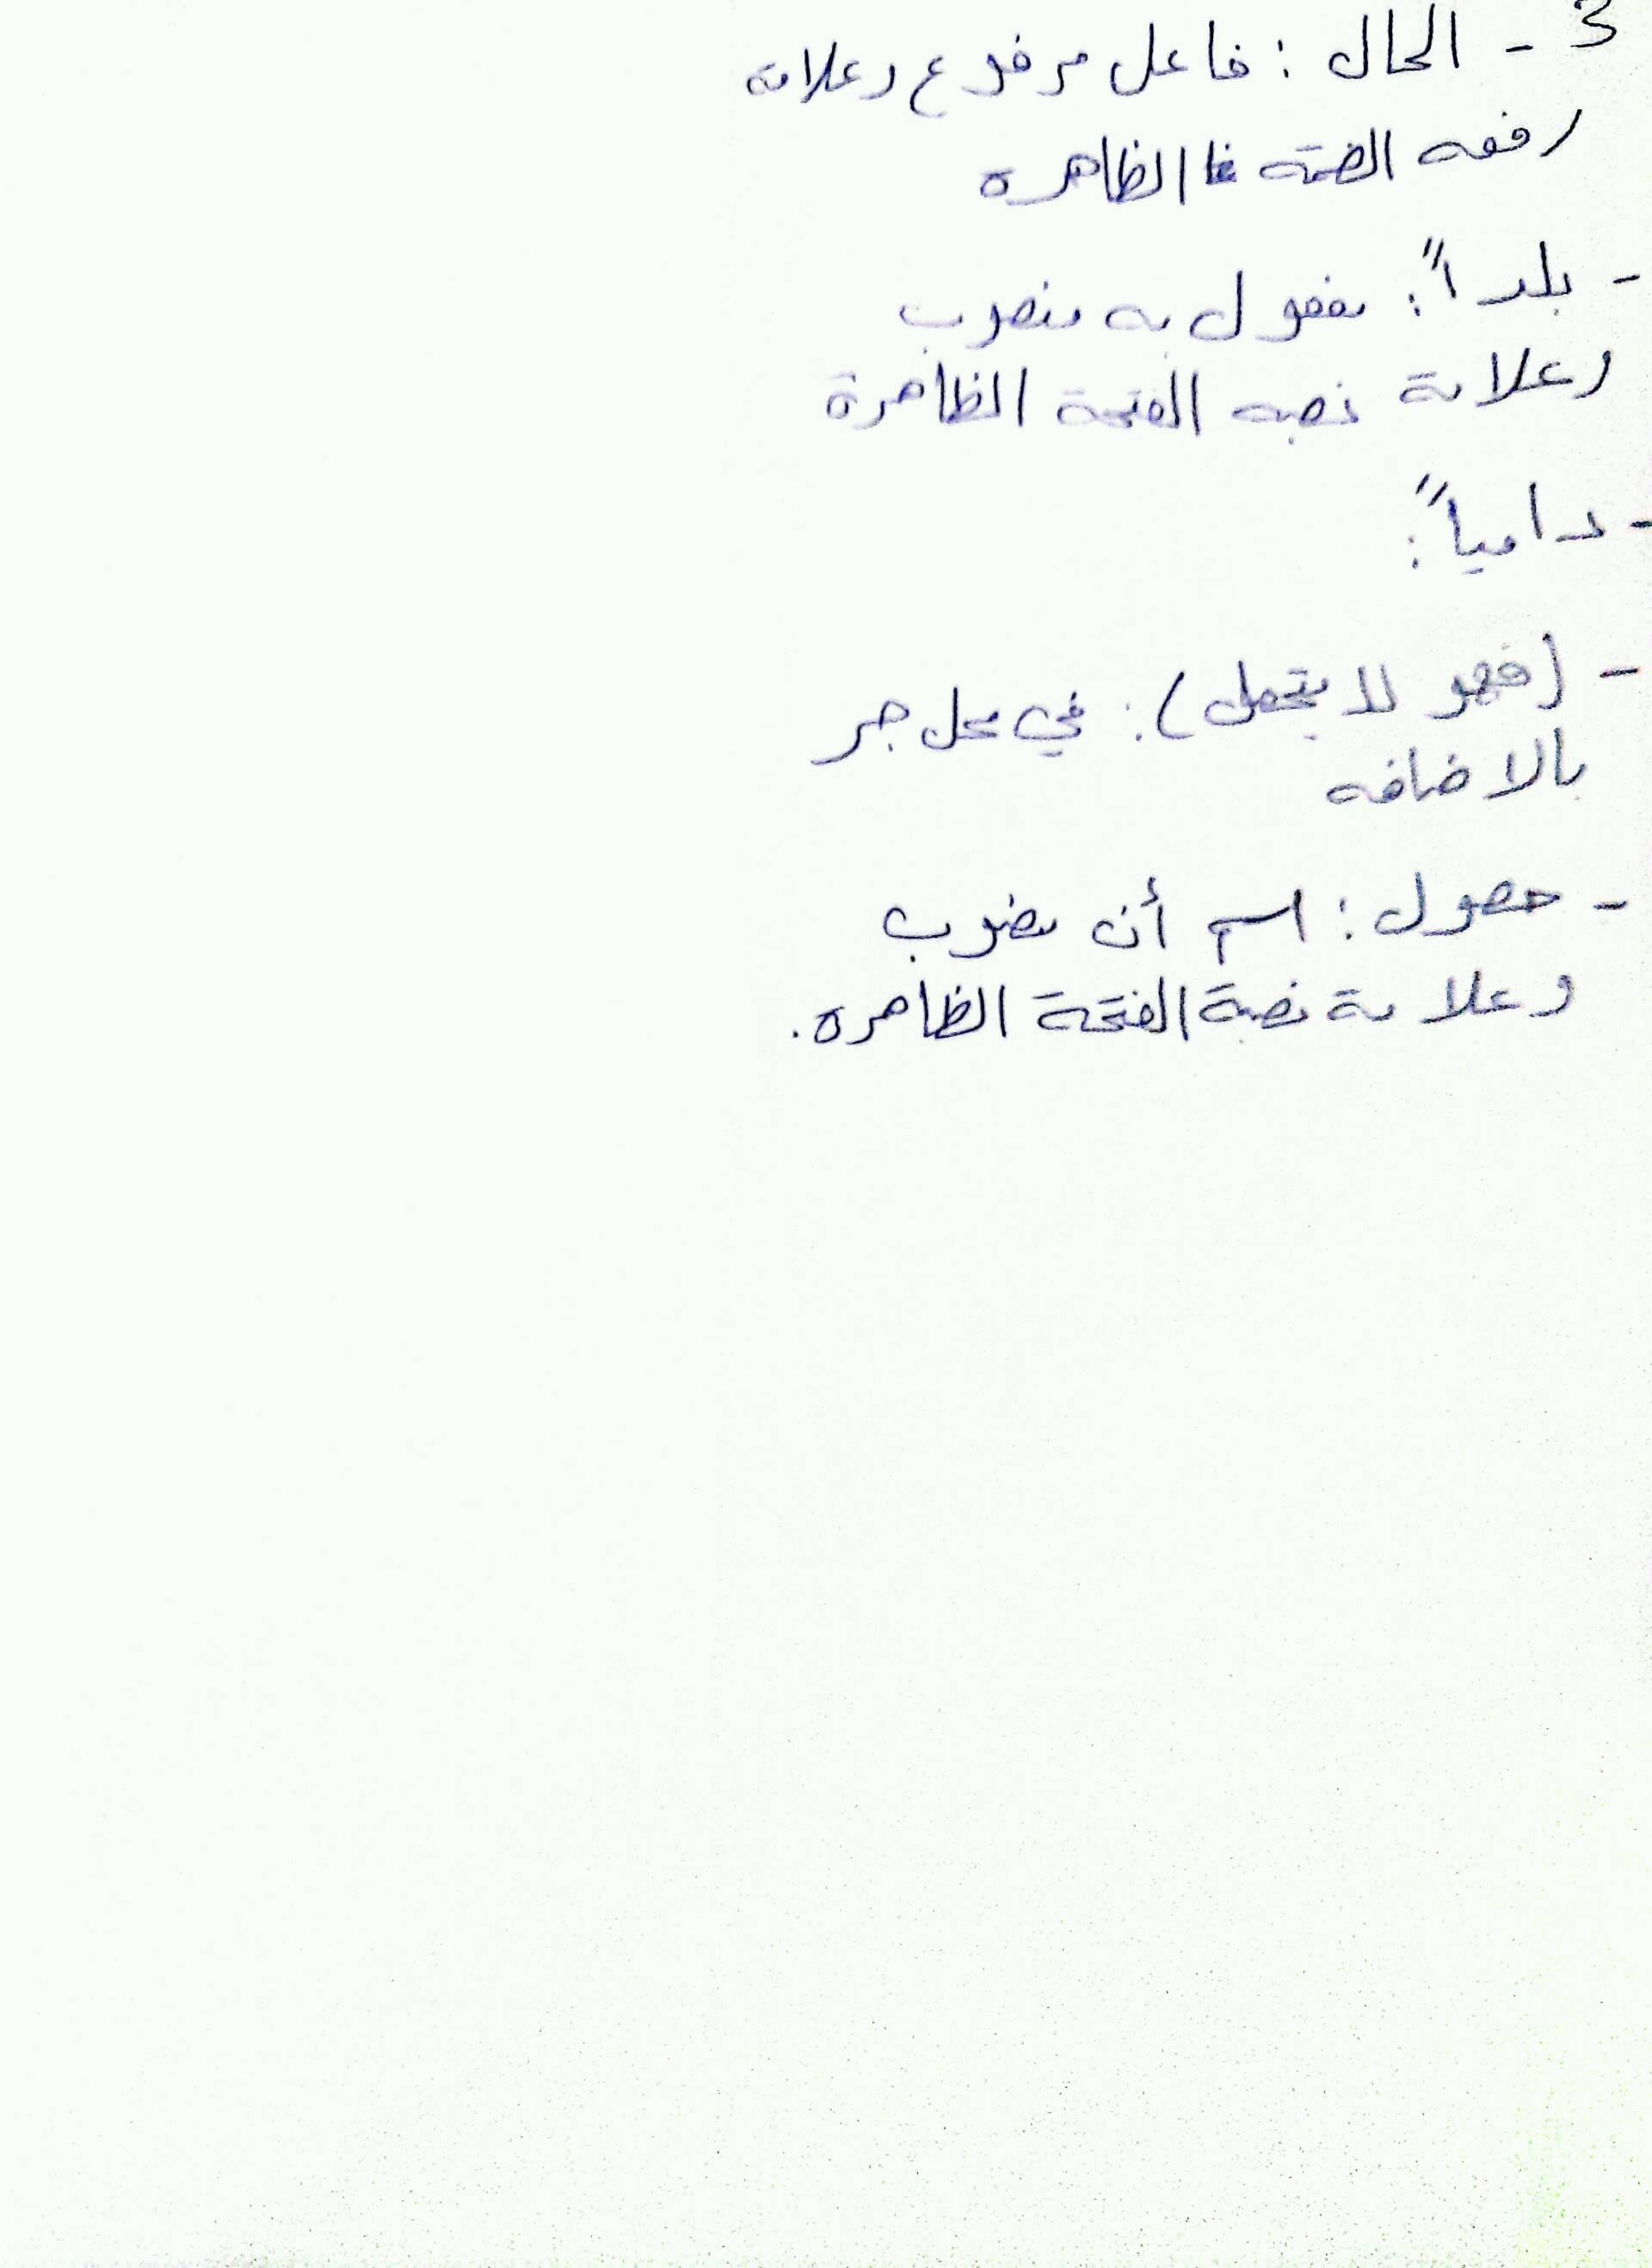 3 - الحال : فاعل مرفوع وعلامة
رفعه الضمة الظاهره
- بلداً : مفعول به منصوب
وعلامة نصبه الفتحة الظاهرة
- دامياً :
- (فهو لا يتحمل) : في محل جر
بالاضافه
- حصول : اسم أن منصوب
وعلامة نصبة الفتحة الظاهره .